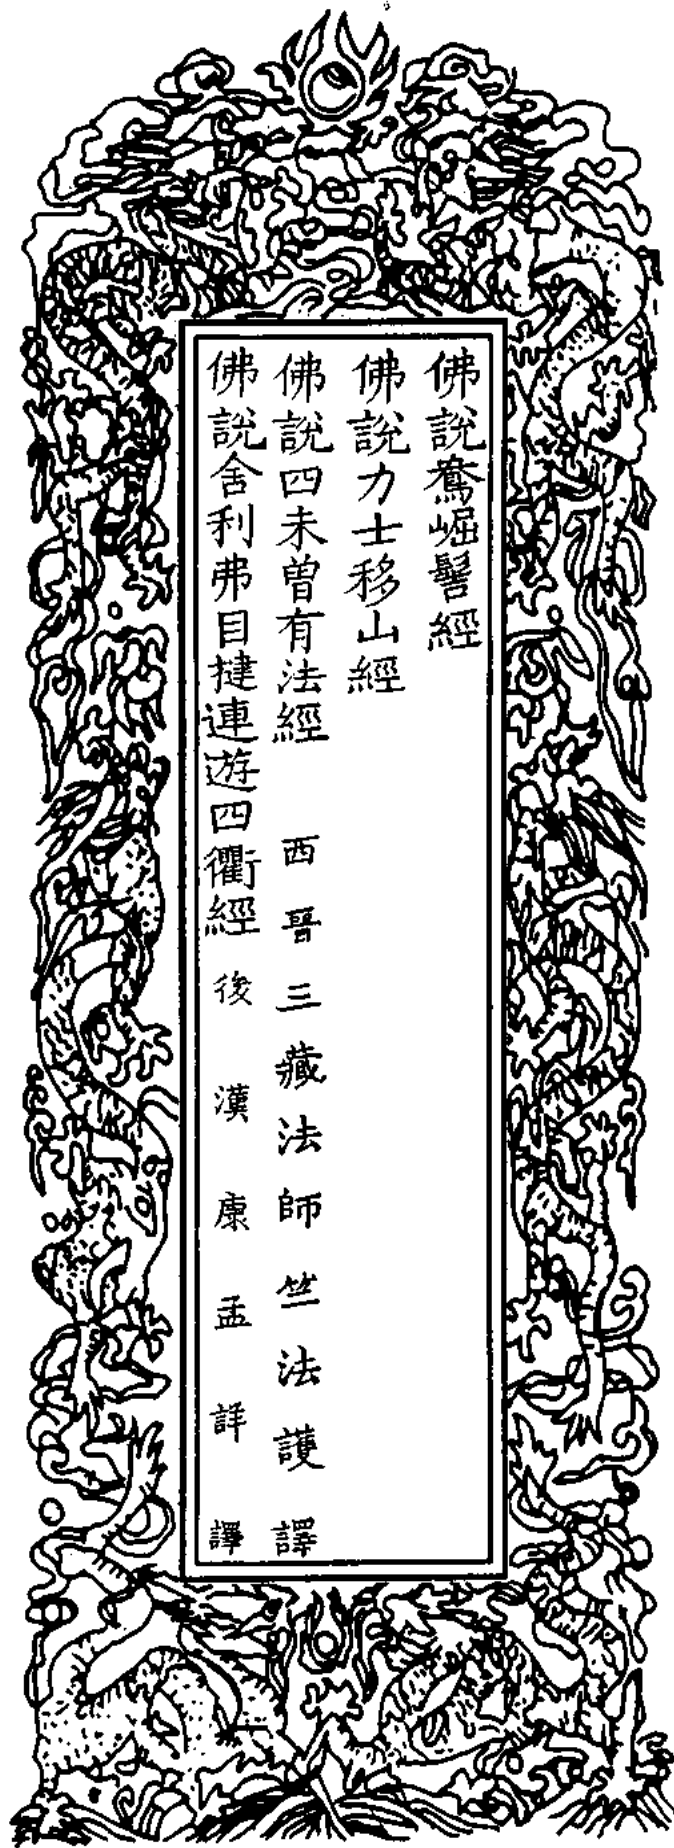 佛說鴦崛髻經
佛說力士移山經
佛說四未曾有法經　西晉三藏法師竺法護譯
佛說舍利弗目揵連遊四衢經　後漢康孟詳譯